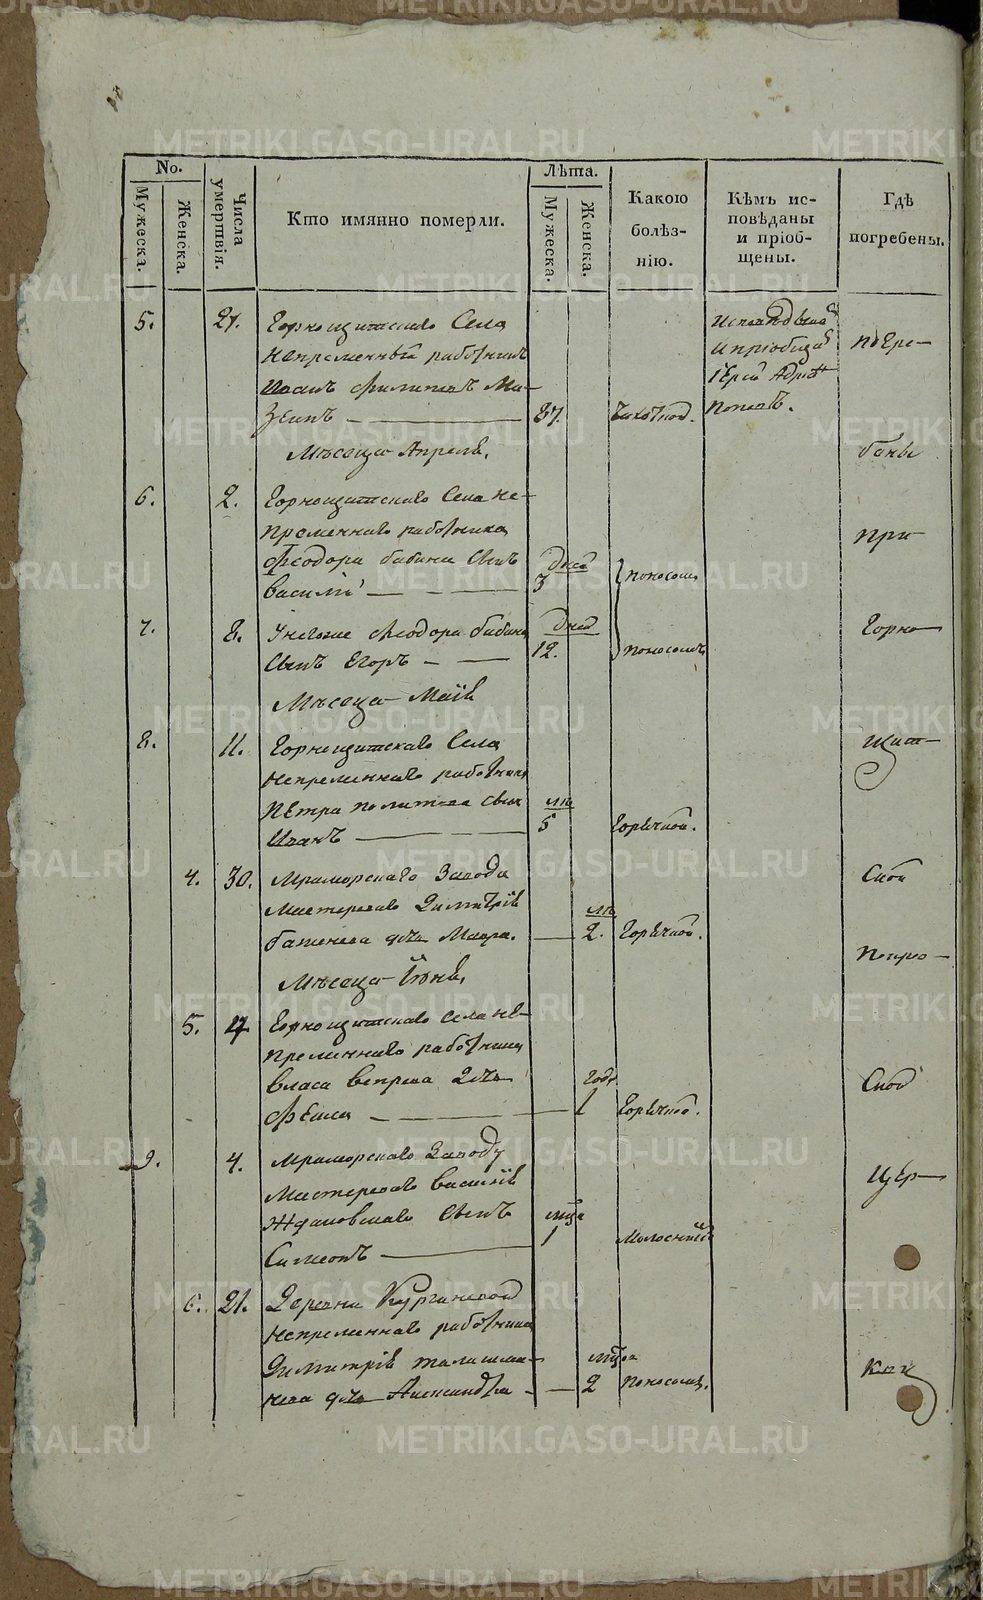 No.
Мужеска.
Женска.
Числа умертвія.
Кто имянно померли.
Лѣта.
Мужеска.
Женска.
Какою болѣз-
нію.
Кѣмъ ис-
повѣданы
и пріоб-
щены.
Гдѣ
погребены.
5.
27.
Горнощитскаго Села
непременный работникъ
Иванъ Филиповъ Ма-
зеинъ
87.
Чахоткой.
и пріобщ
Іерей Андрей
Поповъ.
погре-
Мѣсяца Апреля.
бены
6.
2.
Горнощитскаго Села не-
пременнаго работника
Феодора бабина сынъ
Василій
дней
3
поносомъ
при
7.
8.
Феодора бабина
сынъ Егоръ
дней
12.
поносомъ
Горно
Мѣсяца Маія
8.
11.
Горнощитскаго Села
непременнаго работника
Петра сынъ
Иванъ
лѣтъ
5
Горячкой.
щит
4.
30.
Мраморскаго Завода
Мастероваго Димитрія
баженева дочь Мавра.
лѣтъ
2.
Горячкой.
Ской
Мѣсяца Іюня.
Покро
5.
Горнощитскаго села не-
пременнаго работника
Власа вепрева дочь
годъ
1
Горячкой.
Ской
9.
4.
Мраморскаго Заводу
Мастероваго Василія
Ждановскаго сынъ
Симеонъ
мца
1
Цер-
6.
21.
Деревни Кургановой
непременнаго работника
Димитрія талашма-
нова дочь Александра
мца
2
поносомъ.
кви
METRIKI.GASO-URAL.RU